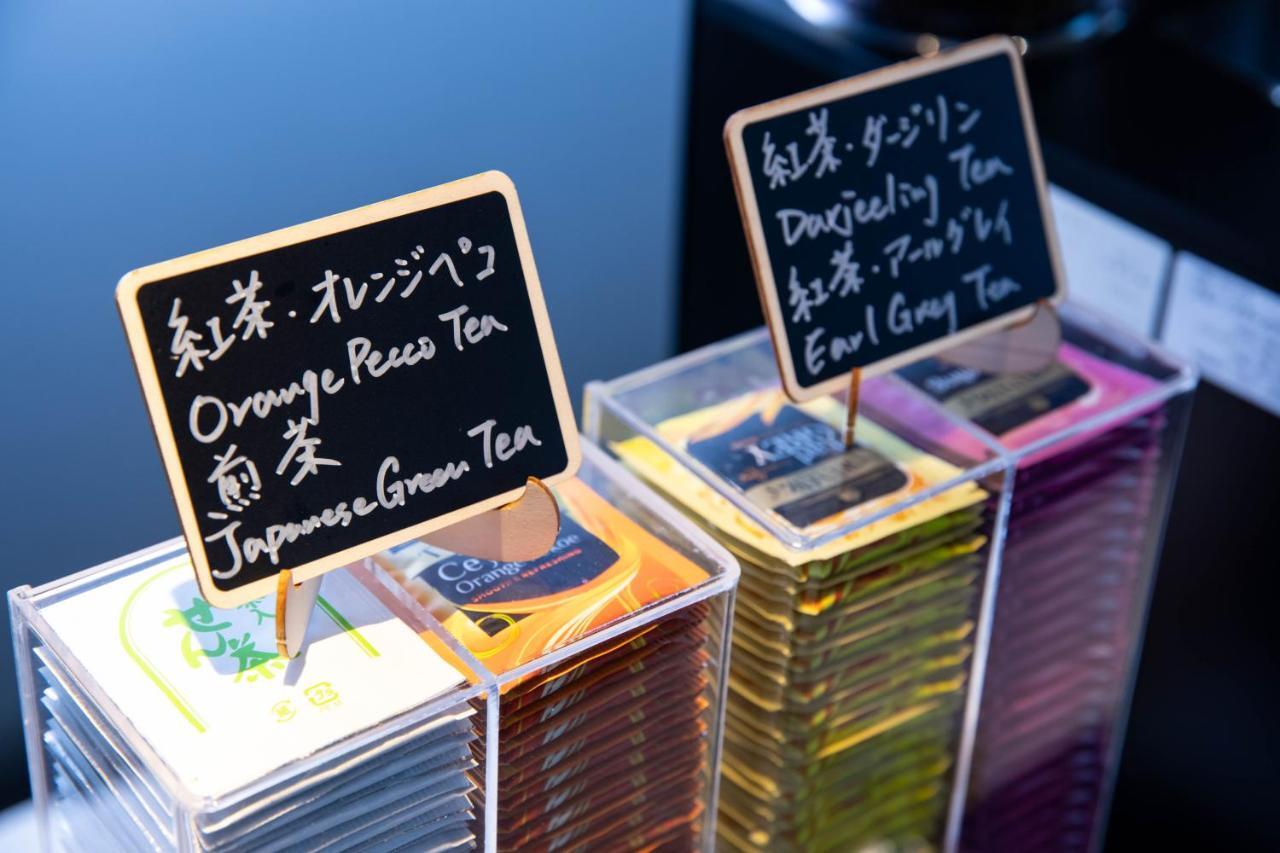 紅茶・オレンジペコ
Orange Pecco Tea
煎茶
Japanese Green Tea
紅茶・ダージリン
Darjeeling Tea
紅茶・アールグレイ
Earl Grey Tea
せん茶
Orange